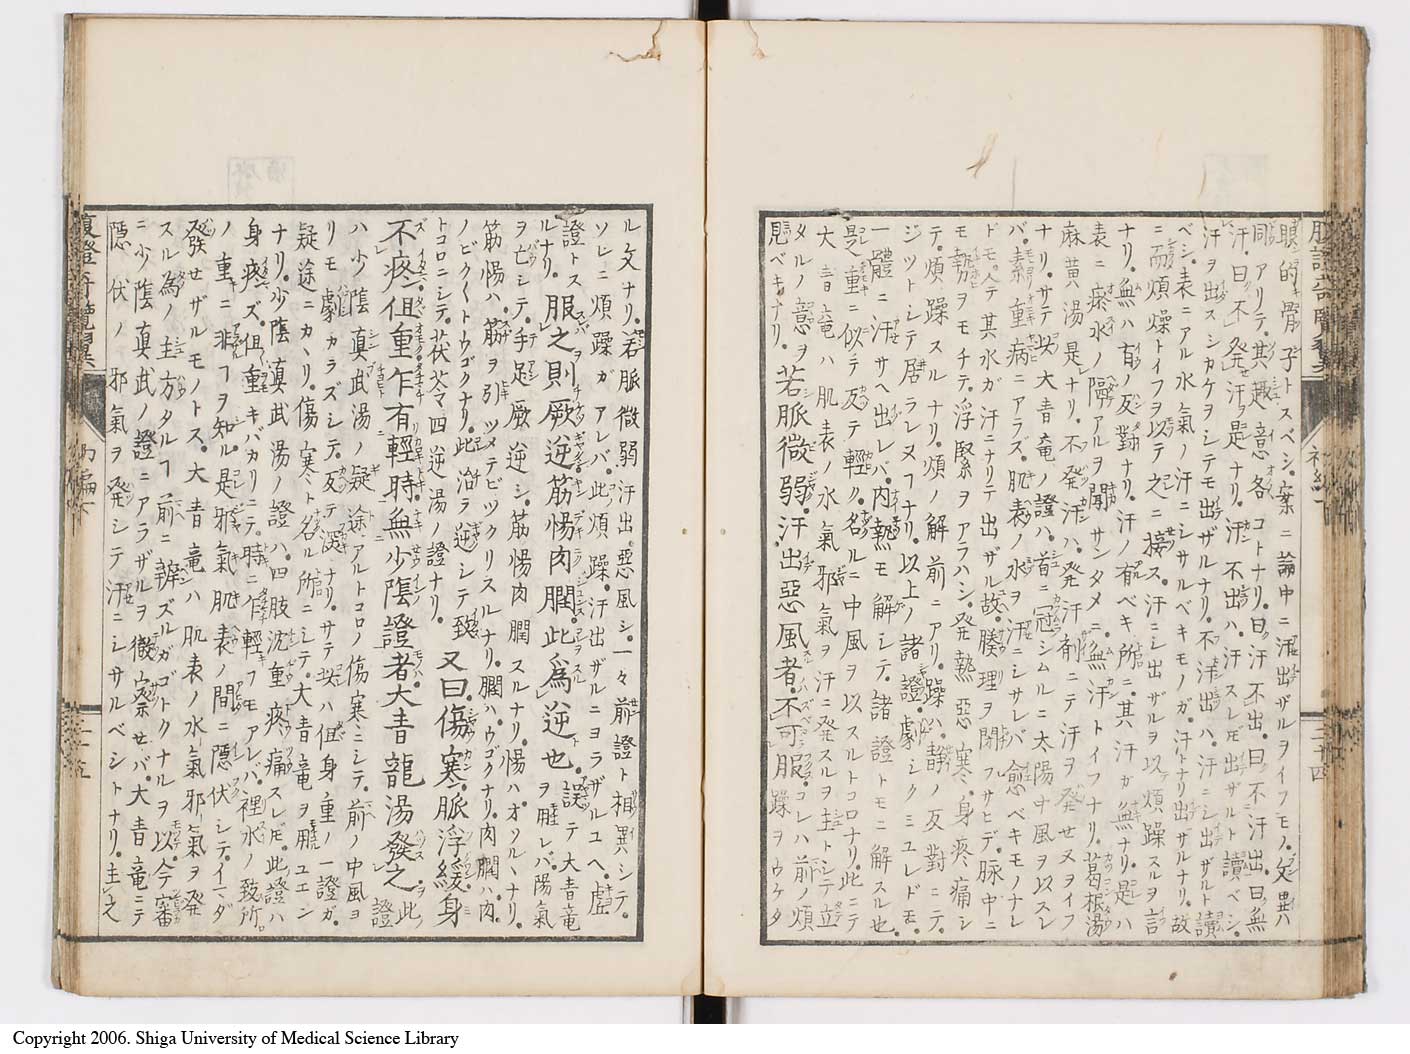 眼的骨子トスベシ。案ニ論中ニ汗出ザルヲイフモノ。文異ハ
同アリテ。其趣意各コトナリ。曰汗不出。曰不汗出。曰無
汗。曰不発汗是ナリ。汗不出ハ。汗スレ𪜈出ザルト讀ベシ。
汗ヲ出スシカケヲシテモ出ザルナリ。不汗出ハ。汗ニシ出ザルト讀
ベシ。表ニアル水氣ノ汗ニシサルベキモノガ。汗トナリ出ザルナリ。故
ニ而煩燥トイフヲ以テ之ニ接ス。汗ニシ出ザルヲ以煩躁スルヲ言
ナリ。無ハ有ノ反對ナリ。汗ノ有ベキ所ニ。其汗ガ無ナリ。是ハ
表ニ瘀水ノ隔アルヲ聞サンタメニ。無汗トイフナリ。葛根湯
麻黄湯是ナリ。不発汗ハ。発汗剤ニテ汗ヲ発セヌヲイフ
ナリ。サテ此大青竜ノ證ハ。首ニ冠シムルニ太陽中風ヲ以スレ
バ。素重病ニアラズ。肌表ノ水ヲ汗ニシサレバ愈ベキモノナレ
ドモ。今テ其水ガ汗ニナリテ出ザル故。腠理ヲ閉フサヒデ。脉中ニ
モ勢ヲモチテ。浮緊ヲアラハシ。発熱惡寒。身疼痛シ
テ。煩躁スルナリ。煩ノ解前ニアリ。躁ハ。静ノ反對ニテ。
ジツトシテ居ラレヌヿナリ。以上ノ諸證。劇シクミユレドモ。
一體ニ汗サヘ出レバ。内熱モ解シテ。諸證トモニ解スル也。
是重ニ似テ反テ輕ク。名ルニ中風ヲ以スルトコロナリ。此ニテ
大青竜ハ肌表ノ水氣邪氣ヲ汗ニ発スルヲ主トシテ立
タルノ意ヲ若脈微弱。汗出惡風者。不可服躁ヲウケタ
見ベキナリ。コレハ前ノ煩
ル文ナリ。若脈微弱汗出。惡風シ。一々前證ト相異ハシテ。
ソレニ煩躁ガアレバ。此煩躁。汗出ザルニヨラザルユヘ。虚
證トス服之則厥逆。筋惕肉瞤。此爲逆也誤テ大青竜
ルナリ。ヲ用レバ。陽氣
ヲ亡シテ。手足厥逆シ。筋惕肉瞤スルナリ。惕ハ。オソルヽナリ。
筋惕ハ。筋ヲ引ツメテビツクリスルナリ。瞤ハ。ウゴクナリ。肉瞤ハ。肉
ノビク〱トウゴクナリ。此治ラ逆シテ致
トコロニシテ。茯苓四逆湯ノ證ナリ。又曰。傷寒。脈浮緩。身
不疼。但重。乍有輕時。無少陰證者。大青龍湯發之此證
ハ少陰真武湯ノ疑途アルトコロノ傷寒ニシテ。前ノ中風ヨ
リモ劇カラズシテ。反テ深ナリ。サテ此ハ但身重ノ一證ガ。
疑途ニカヽリ。傷寒ト名ル所ニシテ。大青竜ヲ用ユエン
ナリ。少陰真武湯ノ證ハ。四肢沈重疼痛スレ𪜈。此證ハ
身疼ズ。但重キバカリニテ。時ニ乍輕キヿモアレバ。裡水ノ致所
ノ重ニ非ヿヲ知ル。是邪氣肌表ノ間ニ隱伏シテ。イマダ
發セザルモノトス。大青竜ハ肌表ノ水氣邪氣ヲ発
スル為ノ主方タルヿ前ニ辨ズルガゴトクナルヲ以。今審
ニ少陰真武ノ證ニアラザルヲ徴察セバ。大青竜ニテ
隱伏ノ邪氣ヲ発シテ汗ニシサルベシトナリ。主之
腹證奇覽翼
初編下